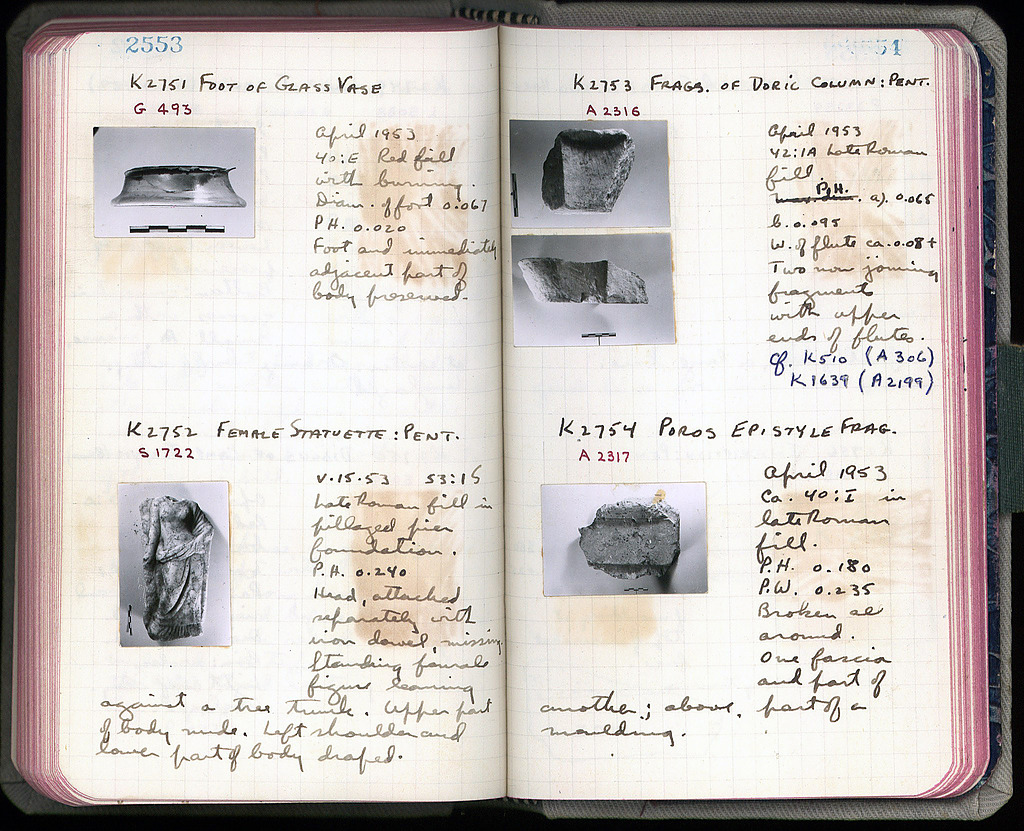 2553
K2751 FOOT OF GLASS VASE
G 493
April 1953
40:E Red fill
with burning.
Diam. of foot 0.067
P.H. 0.020
Foot and immediately
adjacent part of
body preserved.
K2752 FEMALE STATUETTE : PENT.
S 1722
V.15.53 53:15
Late Roman fill in
pillaged pier
foundation.
P.H. 0.240
Head, attached
separately with
iron dowel, missing.
Standing female
figure leaning
against a tree trunk. Upper part
of body nude. Left shoulder and
lower part of body draped.
54
K2753 FRAGS. OF DORIC COLUMN : PENT.
A 2316
April 1953
42:1A Late Roman
fill.
P.H. a). 0.065
b. 0.095
W. of flute ca. 0.08+
Two non joining
fragments
with upper
ends of flutes.
cf. K510 (A 306)
K1639 (A2199)
K2754 POROS EPISTYLE FRAG.
A 2317
April 1953
Ca. 40:I in
late Roman
fill.
P.H. 0.180
P.W. 0.235
Broken all
around.
One fascia
and part of
another; above, part of a
moulding.